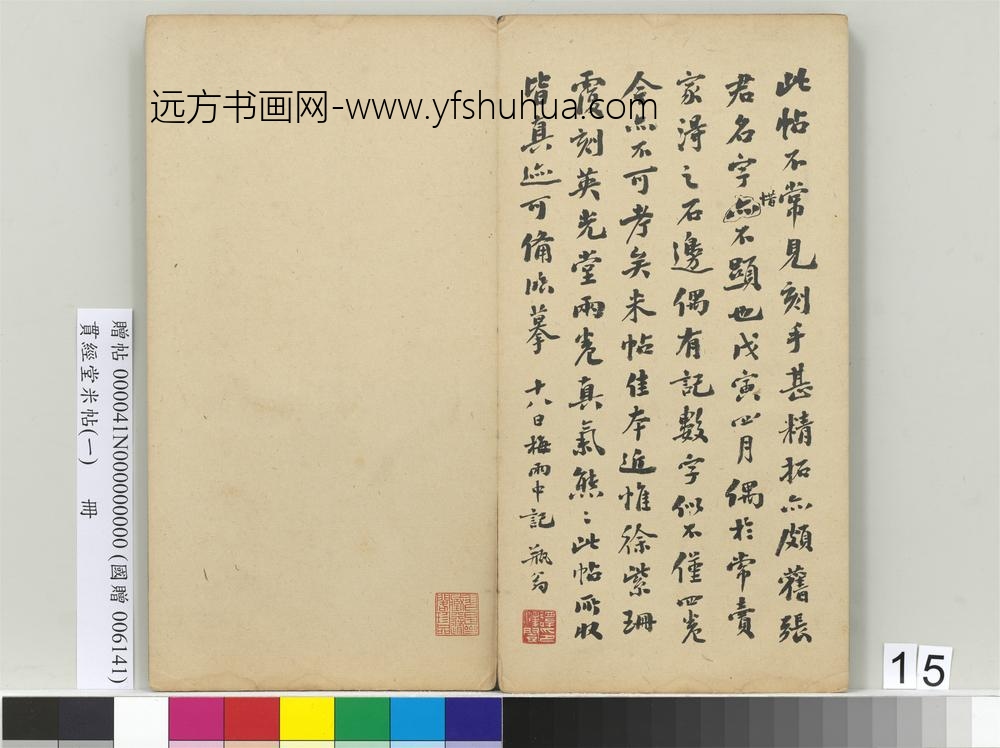 此帖不常見刻手甚精拓亦頗舊張
君名字惜不顯也戊寅四月偶於常賣
家得之石邊偶有記數字似不僅四卷
今亦不可考矣米帖佳本近惟徐紫珊
覆刻英光堂兩卷真氣熊〻此帖所收
皆真跡可備臨摹 十八日梅雨中記 瓶翁
远方书画网-www.yfshuhua.com
贈帖 000041N000000000 (國贈 006141)
貫經堂米帖(一) 冊
15